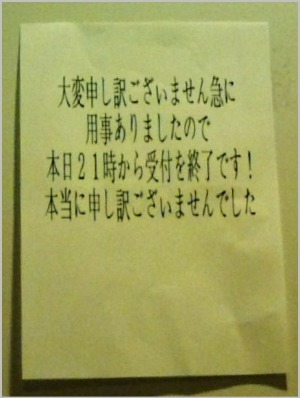 大変申し訳ございません急に
用事ありましたので
本日21時から受付を終了です!
本当に申し訳ございませんでした